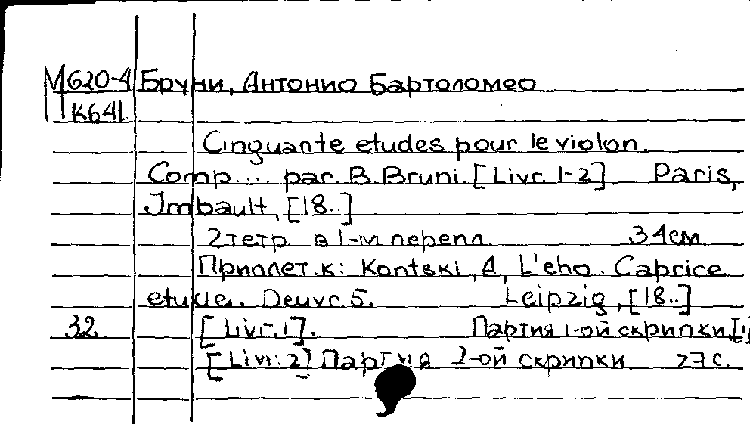 М620-4 Бруни, Антонио Бартоломео
К641
Cinquante etudes pour le violon
Comp... par. B. Bruni. [Livr. 1-2] Paris,
Imbault, [18..]
2 тетр. в 1-м перепл. 34 см
Приплет. к: Kontski, A, L'eho. Caprice
etude. Oeuvr. 5. Leipzig, [18..]
32 [Livr. 1]. Партия 1-ой скрипки
[Livr. 2] Партия 2-ой скрипки 27 с.